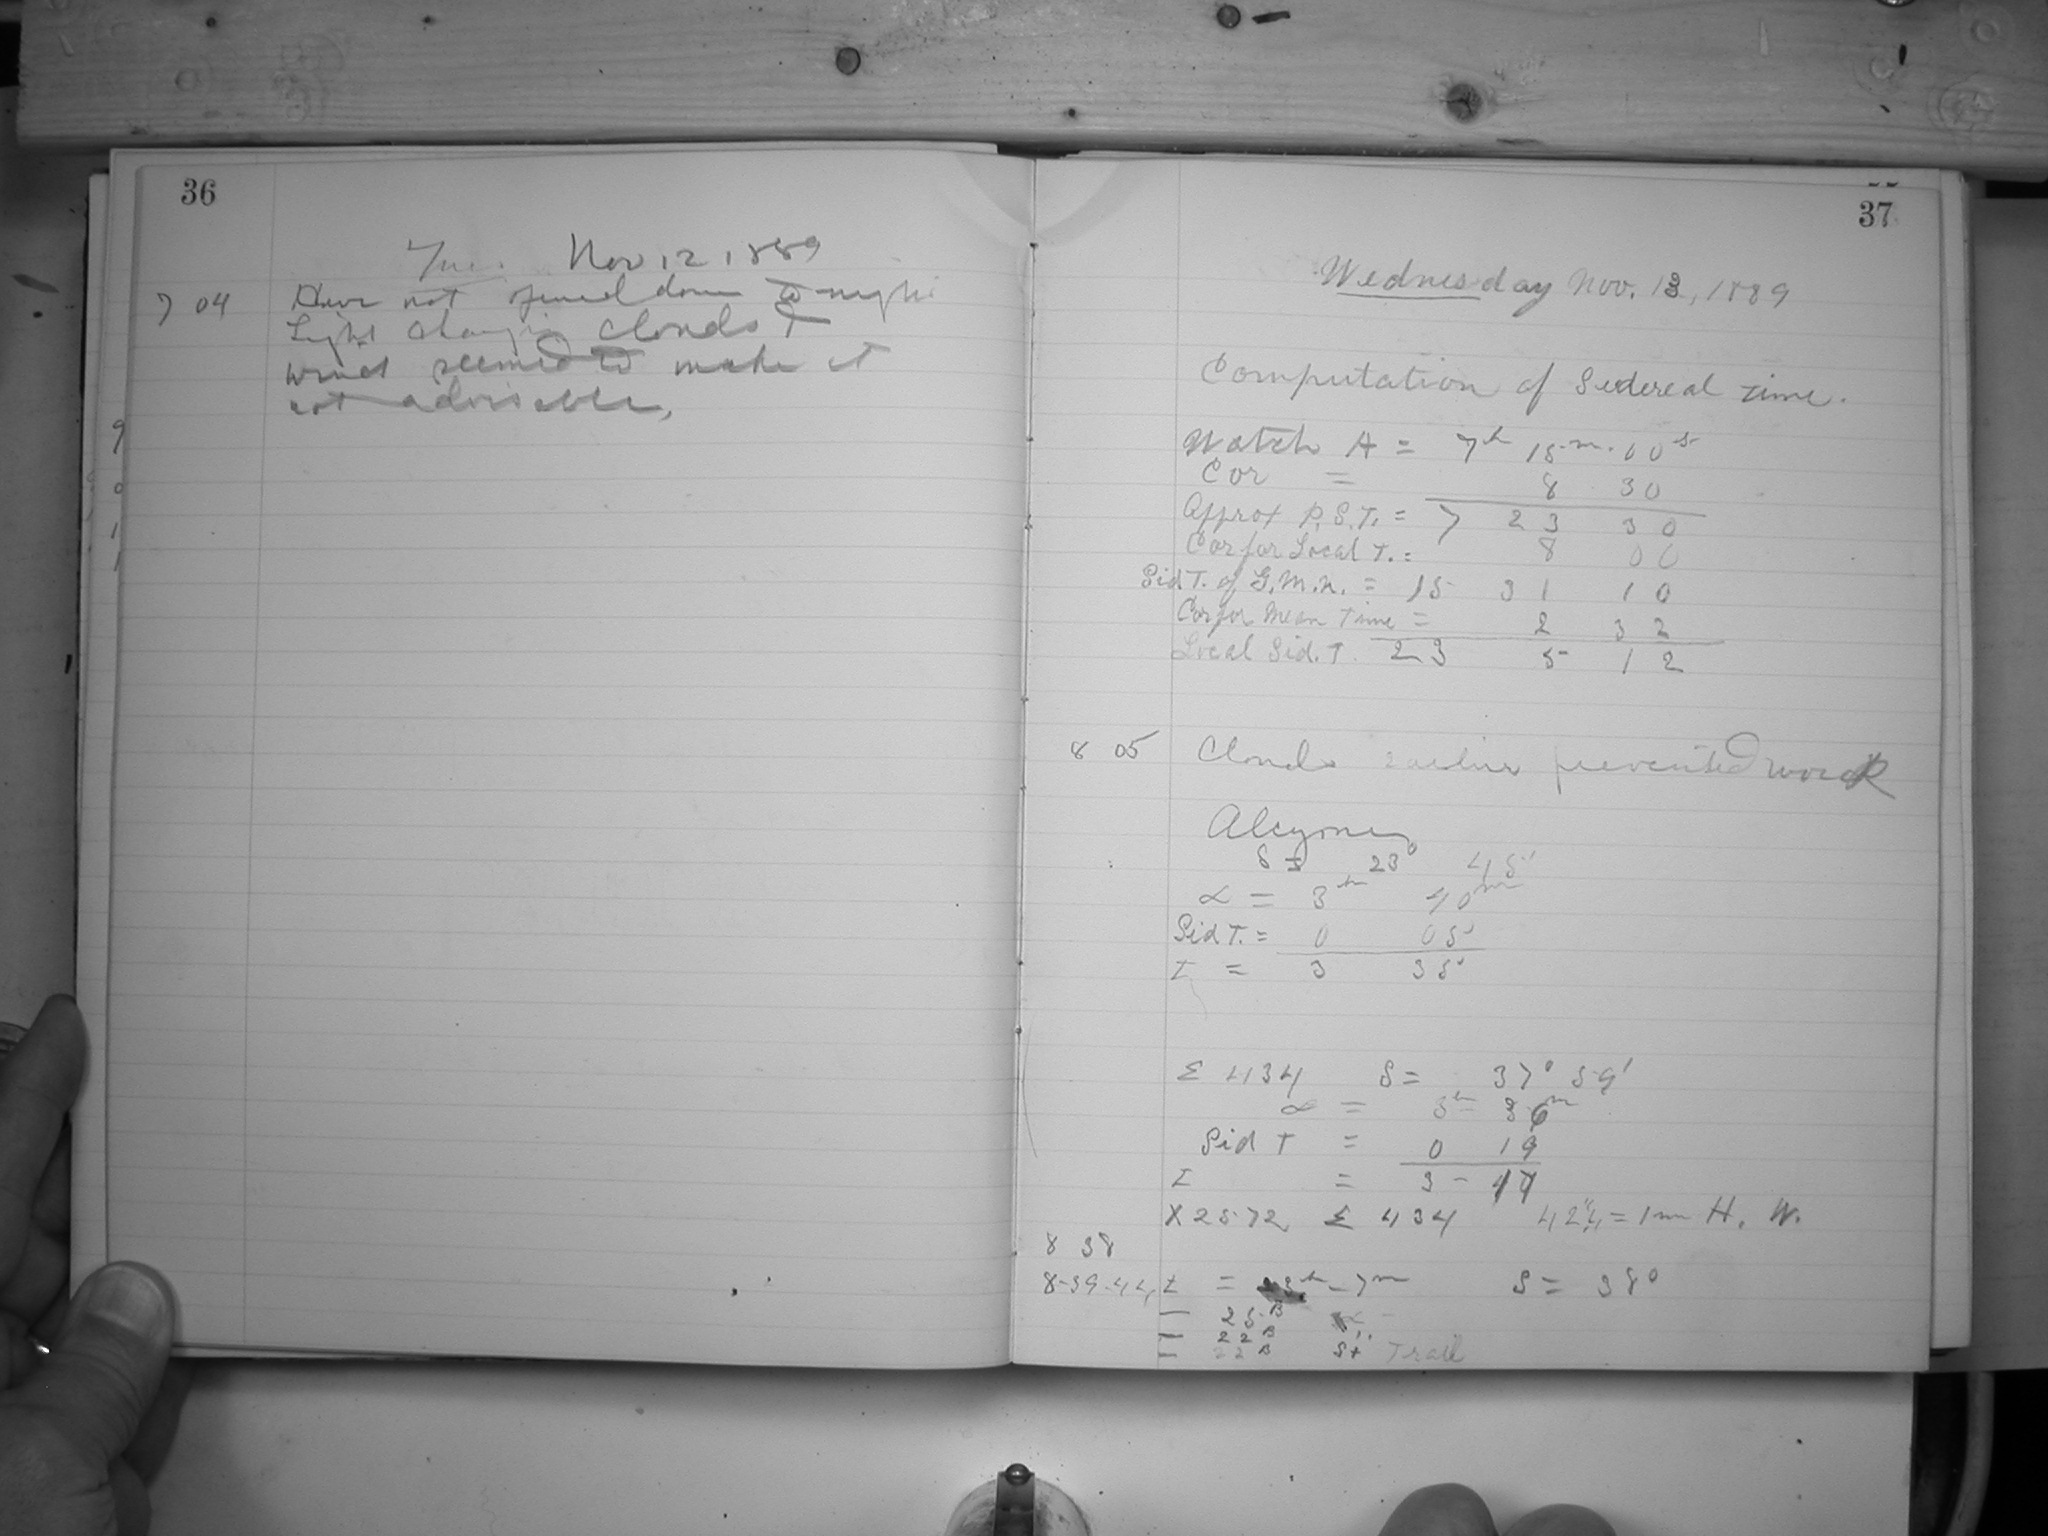 36
Tue. Nov 12 1889
7 04 Have not opened dome to-night
Light changing clouds &
wind seemed to make it
not advisable,
9
0
1
1
37
Wednesday Nov. 13, 1889
Computation of Sidereal Time.
Watch A = 7h 15m. 00s
Cor = 8 30
Approx P.S.T. = 7 23 30
Cor for Local T. = 8 00
Sid T. of G.M.N. = 15 31 10
Cor for Mean Time = 2 32
Local Sid. T. 23 5 12
8 05 Clouds earlier prevented work
Alcyone
δ = 23° 45'
α = 3h 40m
Sid T. = 0 05
t = 3 35
Σ 434 δ = 37° 59'
α = 3h 36m
Sid T = 0 19
t = 3 - 17
X 2572 Σ 434 42".4 = 1m H. W.
8 38
8-39-42 t = 3h - 7m δ = 38°
— 25 B
— 22 B
— 22 B St Trail